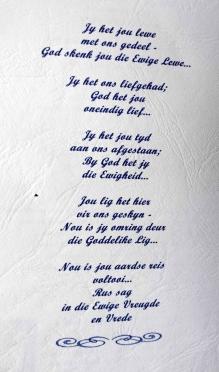 Jy het jou lewe
met ons gedeel -
God skenk jou die Ewige Lewe...
Jy het ons liefgehad;
God het jou
oneindig lief...
Jy het jou tyd
aan ons afgestaan;
By God het jy
die Ewigheid...
Jou lig het hier
vir ons geskyn -
Nou is jy omring deur
die Goddelike Lig...
Nou is jou aardse reis
voltooi...
Rus sag
in die Ewige Vreugde
en Vrede